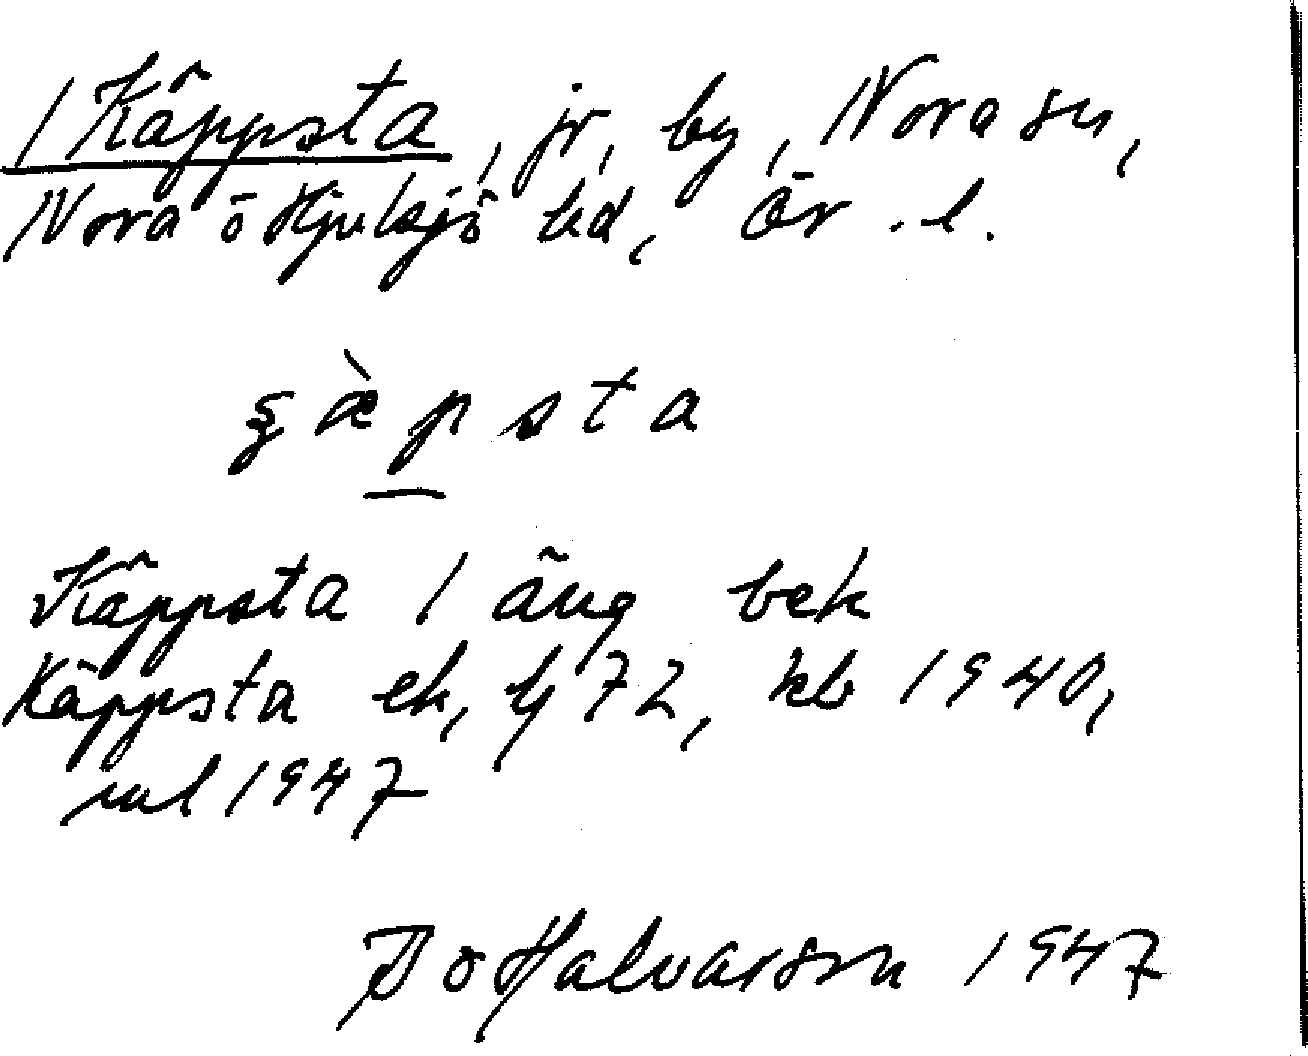 1 Käppsta, jr, by, Nora sn,
Nora o Hjulsjö bd, Ör. l.
ʂæ̀psta
Käppsta 1 äng bek
Käppsta ek, bl 72, kb 1940,
ml 1947
Bo Halvarson 1947